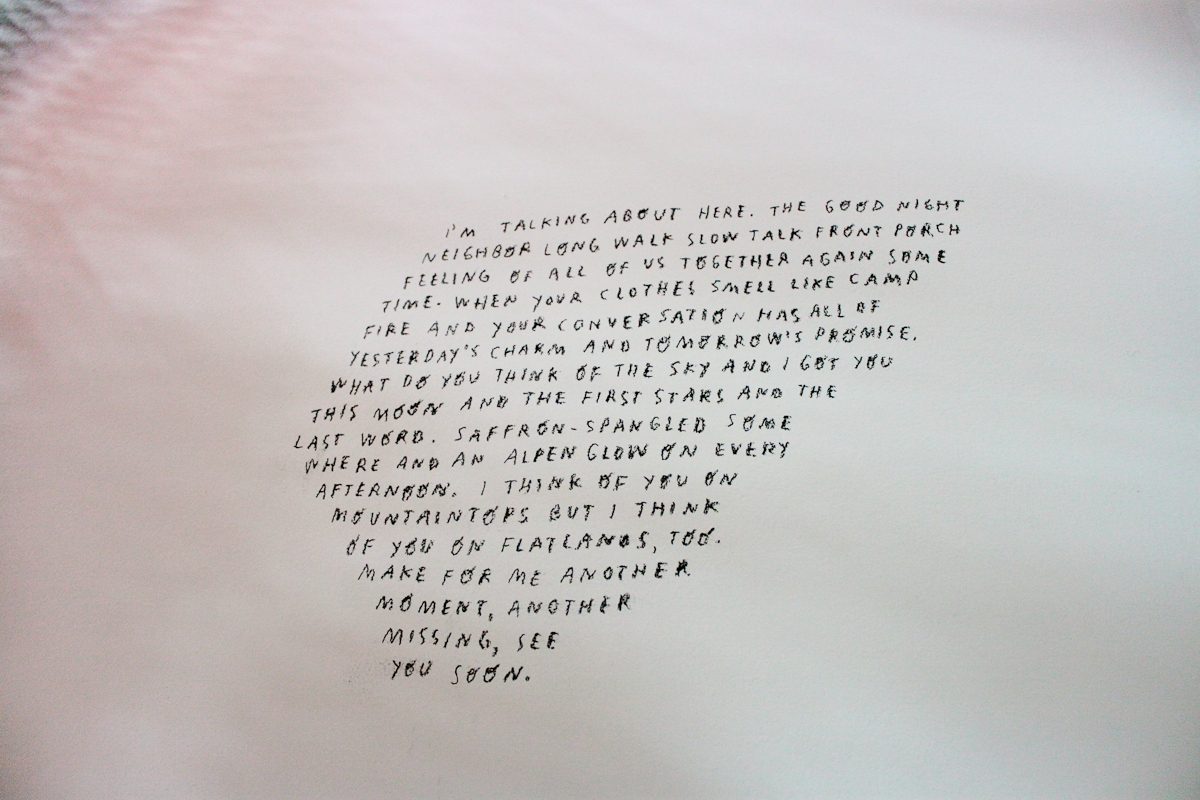 I'M TALKING ABOUT HERE. THE GOOD NIGHT
NEIGHBOR LONG WALK SLOW TALK FRONT PORCH
FEELING OF ALL OF US TOGETHER AGAIN SOME
TIME. WHEN YOUR CLOTHES SMELL LIKE CAMP
FIRE AND YOUR CONVERSATION HAS ALL OF
YESTERDAY'S CHARM AND TOMORROW'S PROMISE.
WHAT DO YOU THINK OF THE SKY AND I GOT YOU
THIS MOON AND THE FIRST STARS AND THE
LAST WORD. SAFFRON-SPANGLED SOME
WHERE AND AN ALPEN GLOW ON EVERY
AFTERNOON. I THINK OF YOU ON
MOUNTAINTOPS BUT I THINK
OF YOU ON FLATLANDS, TOO.
MAKE FOR ME ANOTHER
MOMENT, ANOTHER
MISSING, SEE
YOU SOON.